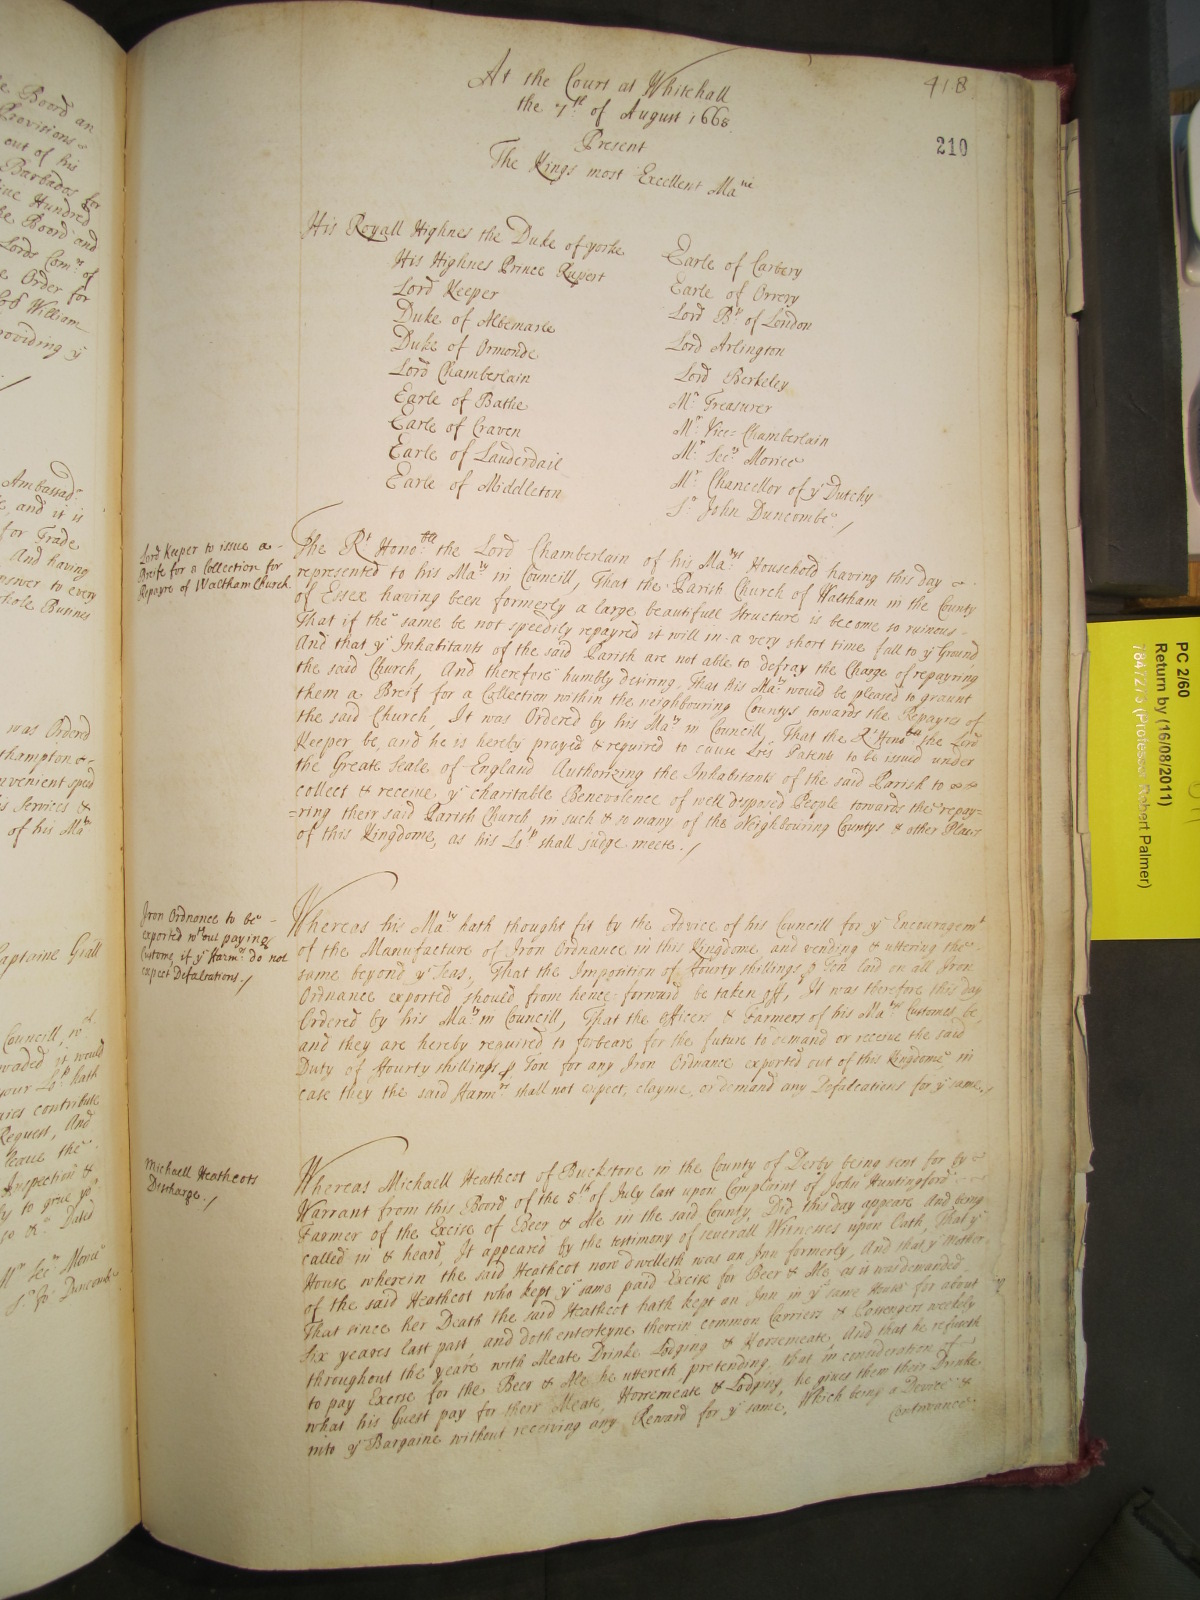 e Board an
Provisions
out of his
Barbados for
ive Hundred
he Board and
Lords Com.rs of
e Order for
Sr William
roviding ye
Ambassad.r
e, and it is
for Trade
And having
nswer to every
whole Businēs
was Orderd
thampton
nvenient speed
is Services &
of his Ma.ty
aptaine Grall
Councill, wch
waded it would
your Lo.ps hath
aries contribute
Request, And
leave the
Inspection &
ly to give yo.r
so &c Dated
Mr Secry Morice
Sr Jo: Duncombe
418
210
At the Court at Whitehall
the 7th of August 1668
Present
The Kings most Excellent Ma.tie
His Royall Highnes the Duke of Yorke
His Highnes Prince Rupert
Lord Keeper
Duke of Albemarle
Duke of Ormonde
Lord Chamberlain
Earle of Bathe
Earle of Craven
Earle of Lauderdail
Earle of Middleton
Earle of Carbery
Earle of Orrery
Lord Bp of London
Lord Arlington
Lord Berkeley
Mr Treasurer
Mr Vice=Chamberlain
Mr Secry Morice
Mr Chancellor of ye Dutchy
Sr John Duncombe /
Lord Keeper to issue a
Breife for a Collection for
Repayre of Waltham Church.
The Rt Hono.ble the Lord Chamberlain of his Ma.ts Household having this day
represented to his Ma.ty in Councill, That the Parish Church of Waltham in the County
of Essex having been formerly a large beautifull Structure is become so ruinous
That if the same be not speedily repayred it will in a very short time fall to ye Ground
And that ye Inhabitants of the said Parish are not able to defray the Charge of repayring
the said Church, And therefore humbly desiring, That his Ma.ty would be pleased to graunt
them a Breif for a Collection within the neighbouring Countys towards the Repayres of
the said Church, It was Ordered by his Ma.ty in Councill, That the Rt Hono.ble the Lord
Keeper be, and he is hereby prayed & required to cause Lrēs Patents to be issued under
the Greate Seale of England Authorizing the Inhabitants of the said Parish to
collect & receive ye charitable Benevolence of well disposed People towards the repay=
=ring their said Parish Church, in such & so many of the Neighbouring Countys & other Places
of this Kingdome, as his Lo.p shall judge meete. /
Iron Ordnance to be
exported wthout paying
Custome, if ye Farm.rs do not
expect Defalcations. /
Whereas his Ma.ty hath thought fit by the Advice of his Councill for ye Encouragem.t
of the Manufacture of Iron Ordnance in this Kingdome and vending & uttering the
same beyond ye Seas, That the Imposition of Fourty shillings ꝑ Ton laid on all Iron
Ordnance exported should from hence forward be taken off, It was therefore this day
Ordered by his Ma.ty in Councill, That the Officers & Farmers of his Ma.ts Customes be,
and they are hereby required to forbeare for the future to demand or receive the said
Duty of Fourty shillings ꝑ Ton for any Iron Ordnance exported out of this Kingdome, in
case they the said Farm.rs shall not expect, clayme, or demand any Defalcations for ye same. /
Michaell Heathcots
Discharge. /
Whereas Michaell Heathcot of Buckstone in the County of Derby being sent for by
Warrant from this Board of the 8th of July last upon Complaint of John Huntingford
Farmer of the Excise of Beer & Ale in the said County, Did this day appeare And being
called in & heard, It appeared by the testimony of severall Witnesses upon Oath, That ye
House wherein the said Heathcot now dwelleth was an Inn formerly, And that ye Mother
of the said Heathcot who kept ye same paid Excise for Beer & Ale as it was demanded
That since her Death the said Heathcot hath kept an Inn in ye same House for about
six yeares last past, and doth enterteyne therein common Carriers & Passengers weekely
throughout the yeare with Meate Drinke Lodging & Horsemeate And that he refuseth
to pay Excise for the Beer & Ale he uttereth, pretending, that in consideration of
what his Guest pay for their Meate, Horsemeate & Lodging, he gives them their Drinke
into ye Bargaine without receiving any Reward for ye same, Which being a Device &
Contrivance
PC 2/60
Return by (16/08/2011)
(Professor Robert Palmer)